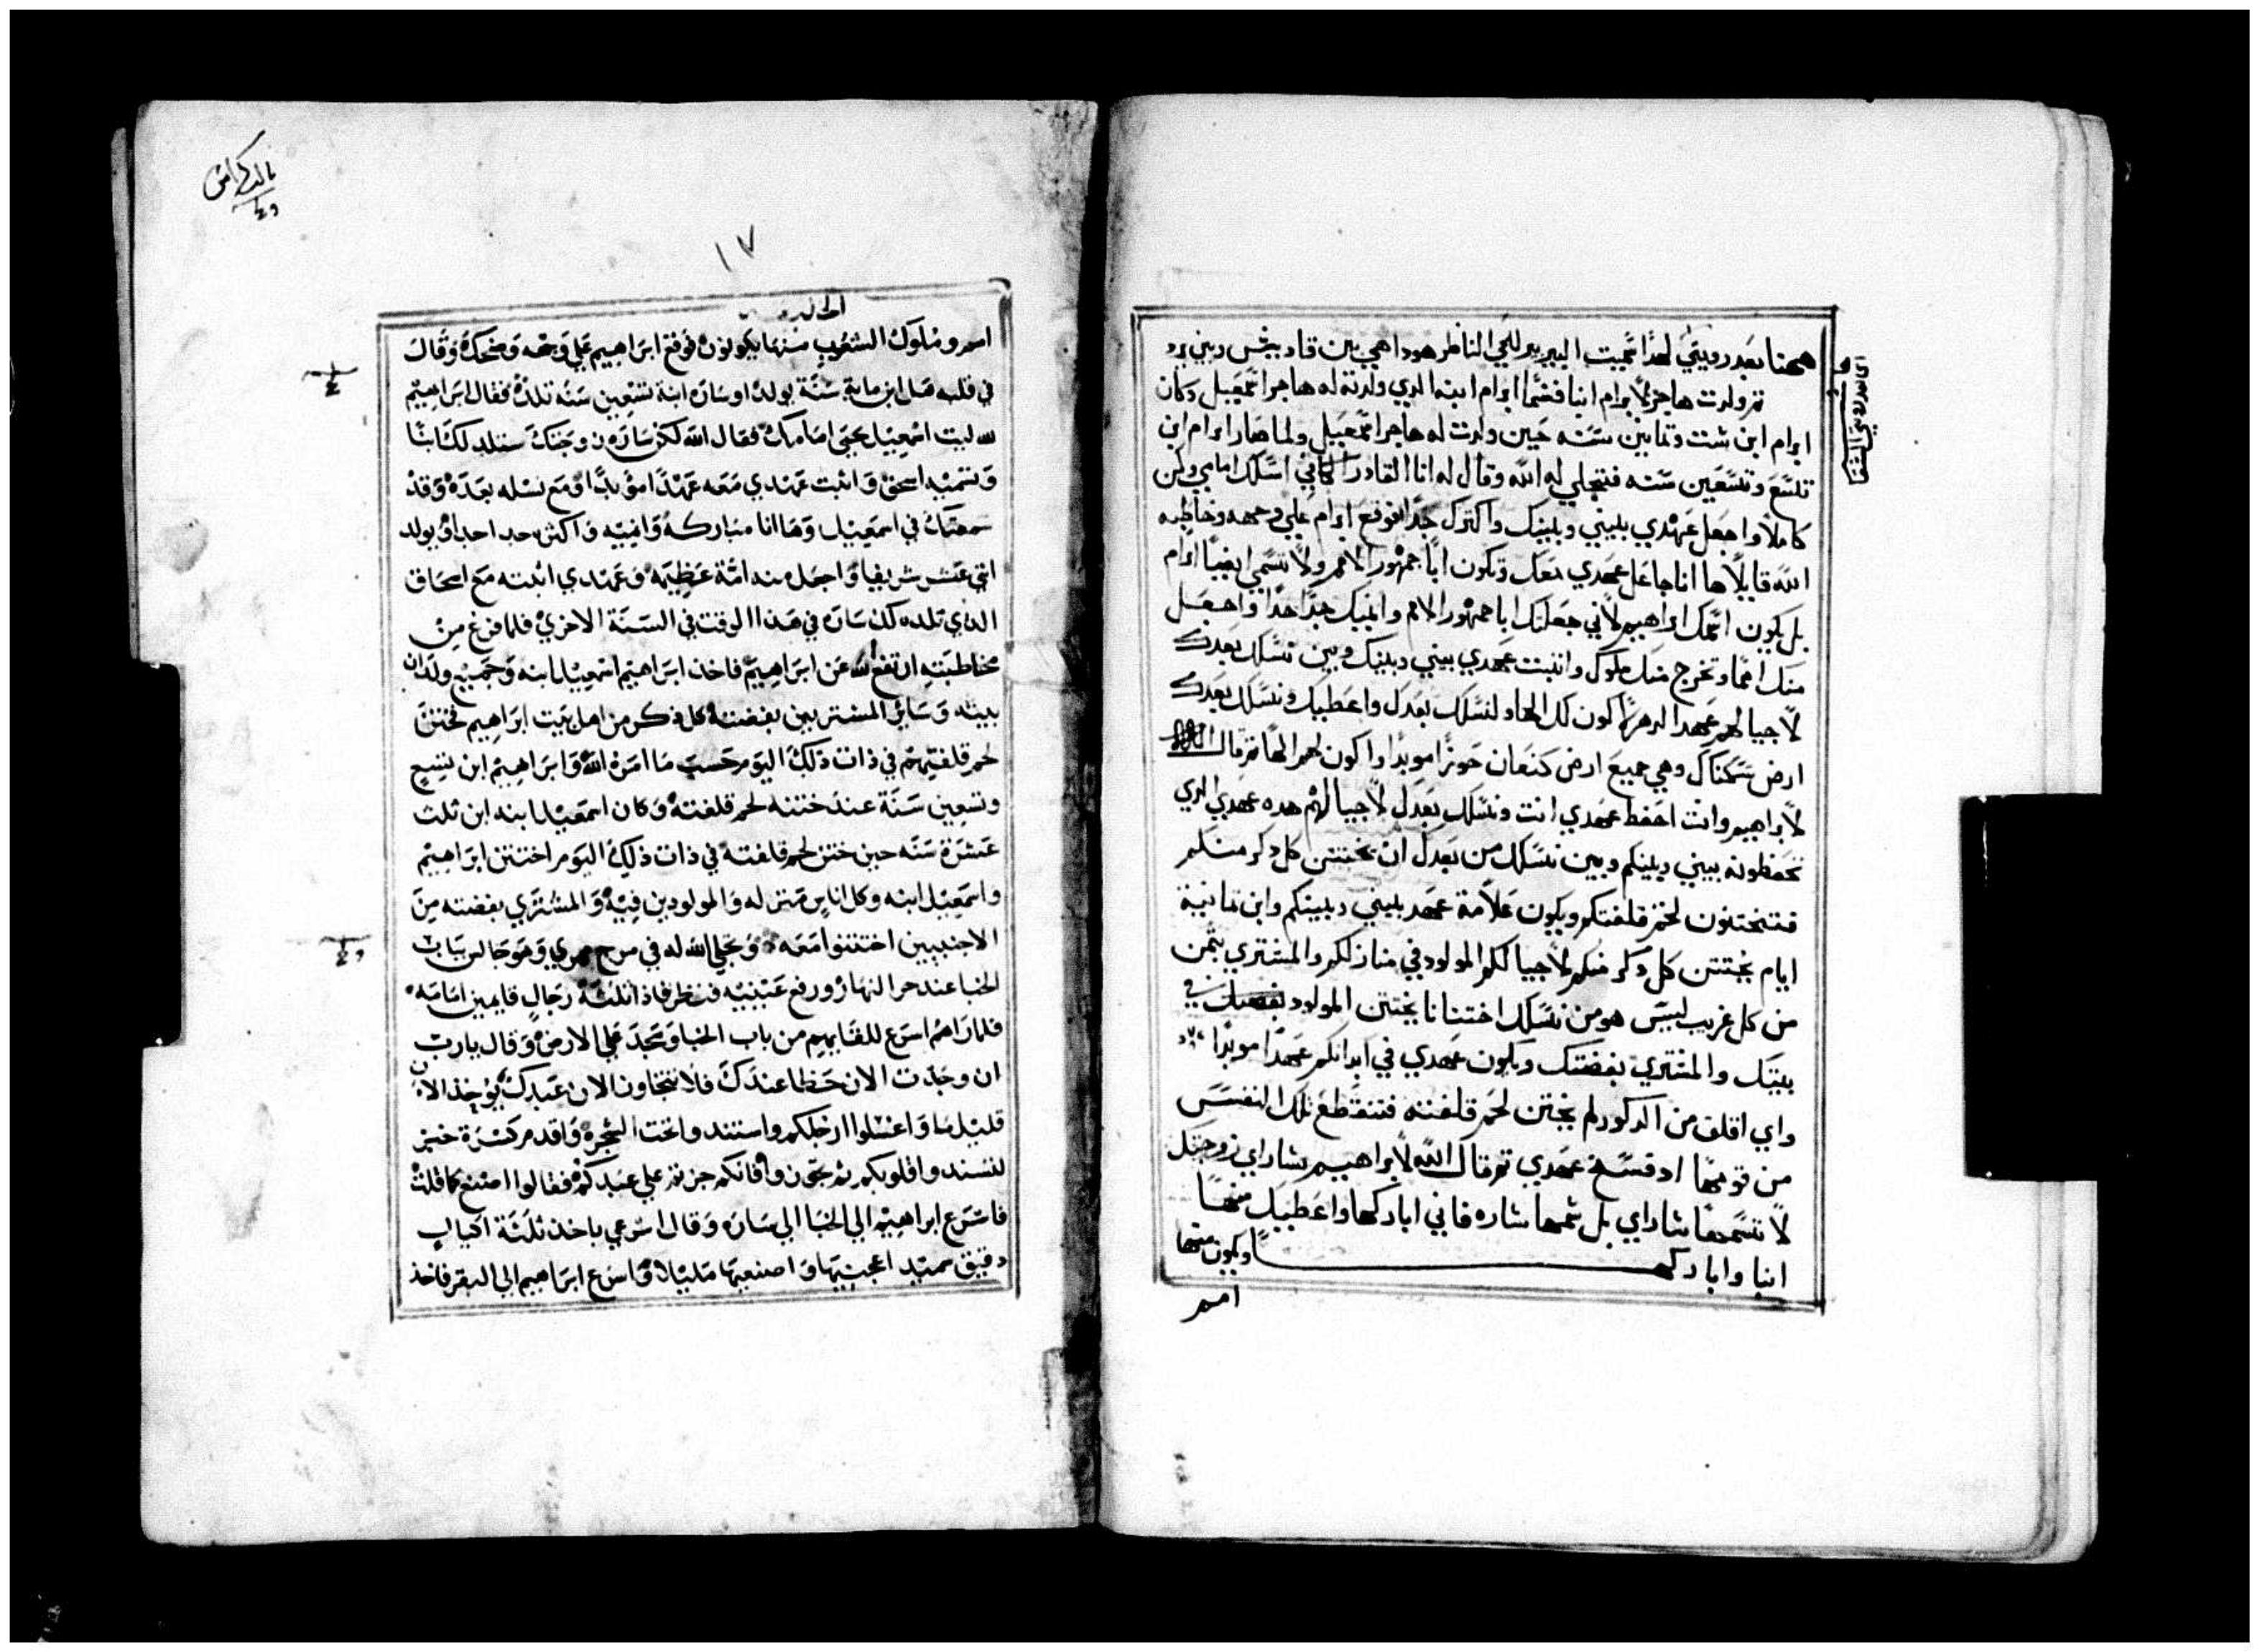 ههنا بعد رويتي لهدا سميت البير بير للحي الناظر هودا هي بين قادس وبين برد
تم ولدت هاجر لابرام ابنا فسما ابرام ابنه الدي ولدته له هاجر اسمعيل وكان
ابرام ابن ست وتمانين سنه حين ولدت له هاجر اسمعيل ولما صار ابرام ابن
تسع وتسعين سنه فتجلي له الله وقال له انا القادر الكافي اسلك امامي وكن
كاملا واجعل عهدي بيني وبينك واكترك جدا فوقع ابرام علي وجهه وخاطبه
الله قايلا ها انا جاعل عهدي معك وتكون ابا جمهور الامم ولا تسمي ايضا ابرام
بل يكون اسمك ابراهيم لاني جعلتك ابا جمهور الامم وانميك جدا جدا واجعل
منك امما وتخرج منك ملوك واتبت عهدي بيني وبينك وبين نسلك بعدك
لاجيالهم عهد الدهر لاكون لك الها ولنسلك بعدك واعطيك ونسلك بعدك
ارض سكناك وهي جميع ارض كنعان حوزا موبدا واكون لهم الها تم قال الله
لابراهيم وانت احفظ عهدي انت ونسلك بعدك لاجيالهم هده عهدي الدي
تحفظونه بيني وبينكم وبين نسلك من بعدك ان يختتن كل دكر منكم
فتختنون لحم قلفتكم ويكون علامة عهد بيني وبينكم وابن تمانية
ايام يختتن كل دكر منكم لاجيالكم المولود في منازلكم والمشتري بتمن
من كل غريب ليس هو من نسلك اختتانا يختتن المولود في
بيتك والمشتري بفضتك ويكون عهدي في ابدانكم عهدا موبدا
واي اقلف من الدكور لم يختتن لحم قلفته فتنقطع تلك النفس
من قومها اد فسخ عهدي تم قال الله لابراهيم ساراي زوجتك
لا تسمها ساراي بل سمها ساره فاني اباركها واعطيك منها
ابنا واباركه ويكون منها
امم
١٧
امم وملوك الشعوب منها يكونون فوقع ابراهيم علي وجهه وضحك وقال
في قلبه هل ابن ماية سنة يولد او سارة ابنة تسعين سنة تلد فقال ابراهيم
لله ليت اسمعيل يحيى امامك فقال الله لكن سارة زوجتك ستلد لك ابنا
وتسميه اسحق واثبت عهدي معه عهدا مؤبدا ومع نسله بعده وقد
سمعتك في اسمعيل وها انا مباركه وانميه واكثره جدا جدا ويولد
اثني عشر شريفا واجعله امة عظيمة وعهدي اثبته مع اسحاق
الذي تلده لك سارة في هذا الوقت في السنة الاخرى فلما فرغ من
مخاطبته ارتفع الله عن ابراهيم فاخذ ابراهيم اسمعيل ابنه وجميع ولدان
بيته وسائر المشتريين بفضته كل ذكر من اهل بيت ابراهيم فختن
لحم قلفتهم في ذات ذلك اليوم حسب ما امره الله وابراهيم ابن تسع
وتسعين سنة عند ختنه لحم قلفته وكان اسمعيل ابنه ابن ثلث
عشرة سنه حين ختن لحم قلفته في ذات ذلك اليوم اختتن ابراهيم
واسمعيل ابنه وكل اناس منزله والمولودين فيه والمشتري بفضته من
الاجنبيين اختتنوا معه وتجلي الله له في مرج ممري وهو جالس بباب
الخبا عند حر النهار ورفع عينيه فنظر فاذا ثلثة رجال قايمين امامه
فلما راهم اسرع للقايهم من باب الخبا وسجد علي الارض وقال يا رب
ان وجدت الان حظا عندك فلا تتجاوز الان عبدك يوخذ الان
قليل ما واغسلوا ارجلكم واستندوا تحت الشجرة واقدم كسرة خبز
لتسندوا قلوبكم ثم تجوزوا فانكم جزتم علي عبدكم فقالوا اصنع كما قلت
فاسرع ابراهيم الي الخبا الي سارة وقال اسرعي باخذ ثلثة اكيال
دقيق سميد اعجنيها واصنعيها مليلا واسرع ابراهيم الي البقر فاخذ